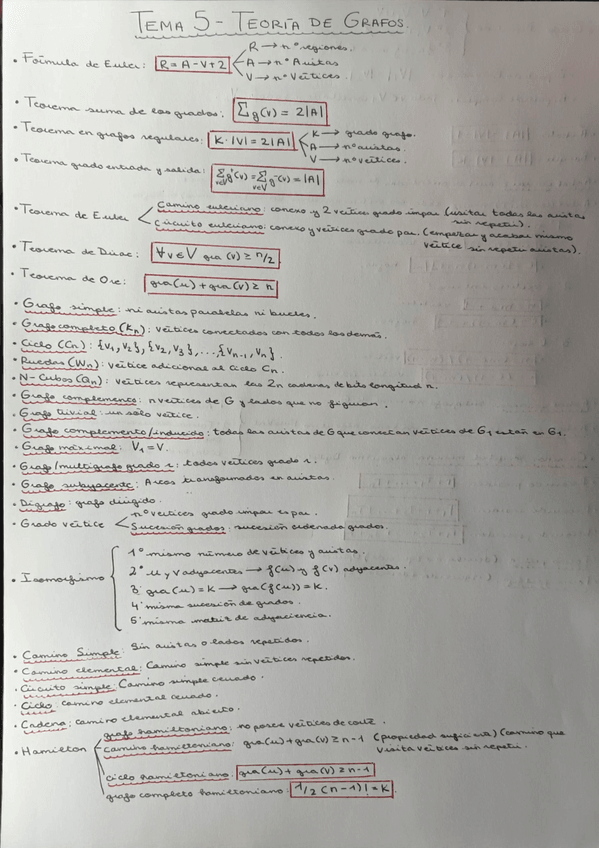 TEMA 5 - TEORÍA DE GRAFOS.
• Fórmula de Euler: R = A - V + 2
R → nº regiones.
A → nº Aristas
V → nº Vértices
• Teorema suma de los grados: Σg(v) = 2|A|
• Teorema en grafos regulares: K·|V| = 2|A|
K → grado grafo.
A → nº aristas.
V → nº vértices.
• Teorema grado entrada y salida: Σ g⁺(v) = Σ g⁻(v) = |A|
v∈V v∈V
• Teorema de Euler
Camino euleriano: conexo y 2 vértice grado impar (visitar todas las aristas
sin repetir).
Circuito euleriano: conexo y vértices grado par. (empezar y acabar mismo
vértice sin repetir aristas).
• Teorema de Dirac: ∀v ∈ V gra (v) ≥ n/2
• Teorema de Ore: gra(u) + gra(v) ≥ n
• Grafo simple: ni aristas paralelas ni bucles.
• Grafo completo (Kn): vértices conectados con todos los demás.
• Ciclo (Cn): {v1, v2}, {v2, v3}, ..., {vn-1, vn}.
• Ruedas (Wn): vértice adicional al Ciclo Cn.
• N-Cubos (Qn): vértices representan las 2n cadenas de bits longitud n.
• Grafo complemento: n vértices de G y lados que no figuran.
• Grafo trivial: un sólo vértice.
• Grafo complemento/inducido: todas las aristas de G que conectan vértices de G1 están en G1.
• Grafo máximal: V1 = V.
• Grafo/multigrafo grado r: todos vértices grado r.
• Grafo subyacente: Arcos transformados en aristas.
• Dígrafo: grafo dirigido.
• Grado vértice
nº vértices grado impar es par.
Sucesión grados: sucesión ordenada grados.
• Isomorfismo
1º mismo número de vértices y aristas.
2º u y v adyacentes → f(u) y f(v) adyacentes.
3º gra(u) = K → gra(f(u)) = K.
4º misma sucesión de grados.
5º misma matriz de adyacencia.
• Camino Simple: Sin aristas o lados repetidos.
• Camino elemental: Camino simple sin vértices repetidos.
• Circuito simple: Camino simple cerrado.
• Ciclo: camino elemental cerrado.
• Cadena: camino elemental abierto.
• Hamilton
grafo hamiltoniano: no posee vértices de corte.
camino hamiltoniano: gra(u) + gra(v) ≥ n-1 (propiedad suficiente) (camino que
visita vértices sin repetir.
ciclo hamiltoniano: gra(u) + gra(v) ≥ n-1
grafo completo hamiltoniano: 1/2 (n-1)! = K.